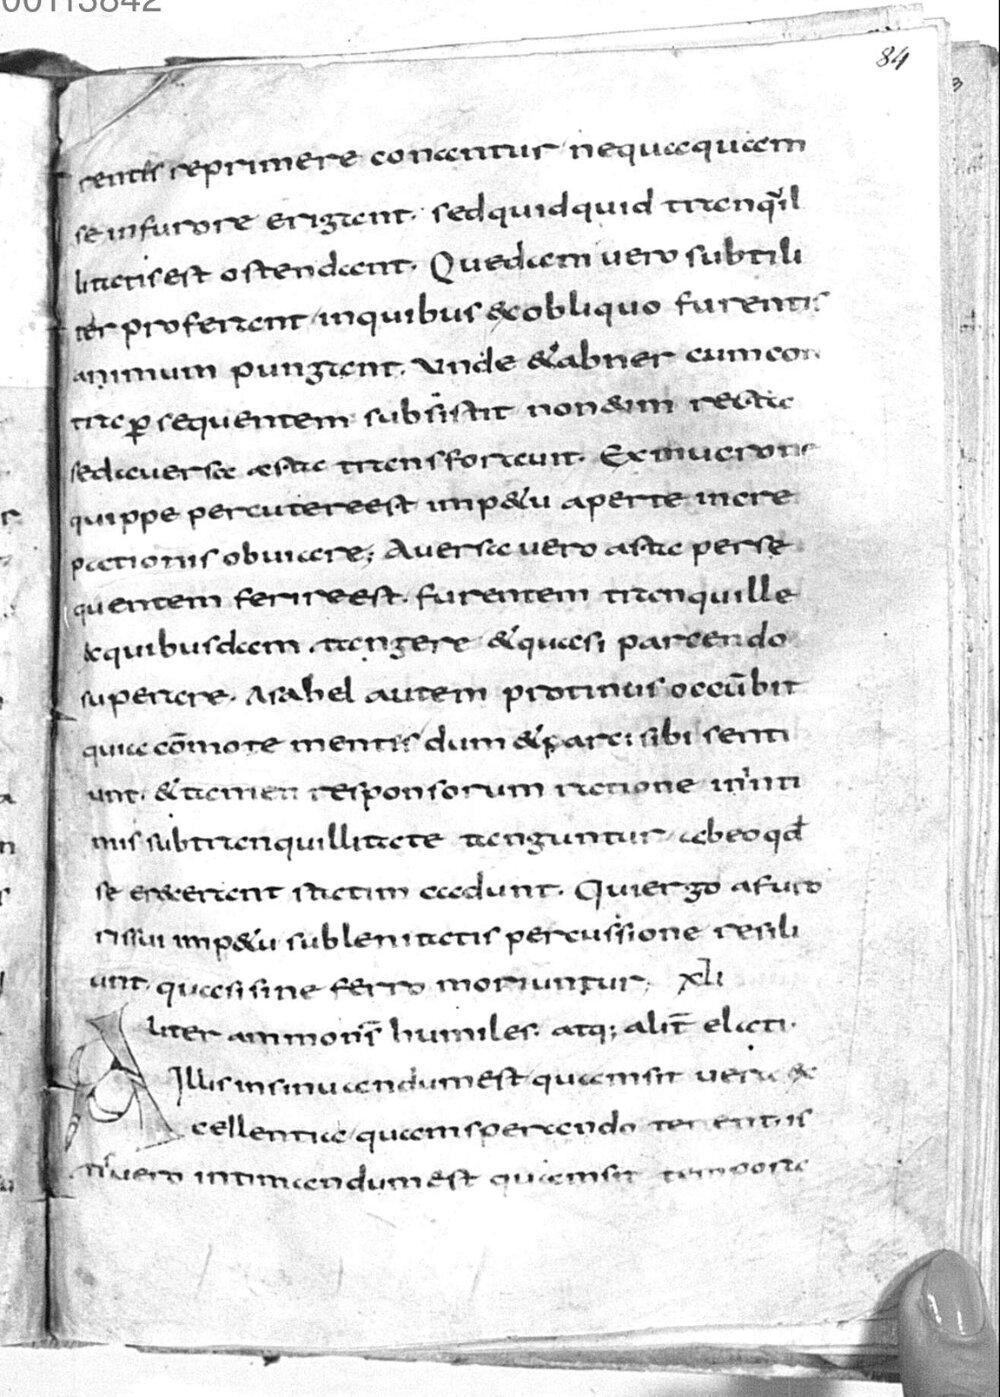 00113842
84
rentis reprimere conantur nequaquam
se in furore erigant. sed quidquid tranqil
litatis est ostendant. Quedam vero subtili
ter proferant inquibus & obliquo furentis
animum pungant. Unde & abner cum con
tra p sequentem subsistit non eum recta
sed aversa asta transforavit. Ex mucrone
quippe percutere est impetu aperte incre
pationis obviare; Aversa vero asta perse
quentem ferire est. furentem tranquille
ex quibusdam tangere & quasi parcendo
superare. Asahel autem protinus occūbit
quia cōmote mentis dum & parci sibi senti
unt. & tamen responsorum ratione in inti
mis sub tranquillitate tanguntur ab eo qd
se erexerant statim cadunt. Qui ergo a furo
ris sui impetu sub lenitatis percussione resili
unt. quasi sine ferro moriuntur; xli
Aliter ammonēs humiles. atq; alit elati.
Illis insinuandum est quam sit vera ex
cellentia quam sperando tenent. is
tis vero intimandum est quam sit temporalis